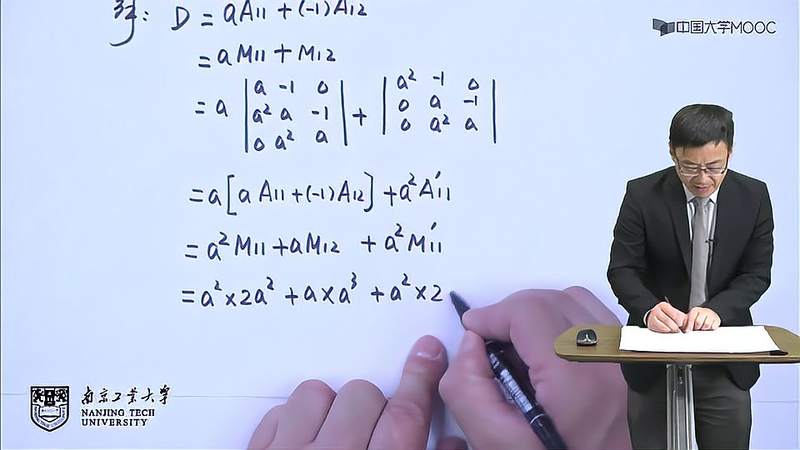 解: D = aA₁₁ + (-1)A₁₂
= aM₁₁ + M₁₂
= a | a -1 0 | + | a² -1 0 |
| a² a -1 | | 0 a -1 |
| 0 a² a | | 0 a² a |
= a[aA₁₁ + (-1)A₁₂] + a²A′₁₁
= a²M₁₁ + aM₁₂ + a²M′₁₁
= a² × 2a² + a × a³ + a² × 2
中国大学MOOC
南京工业大学
NANJING TECH
UNIVERSITY